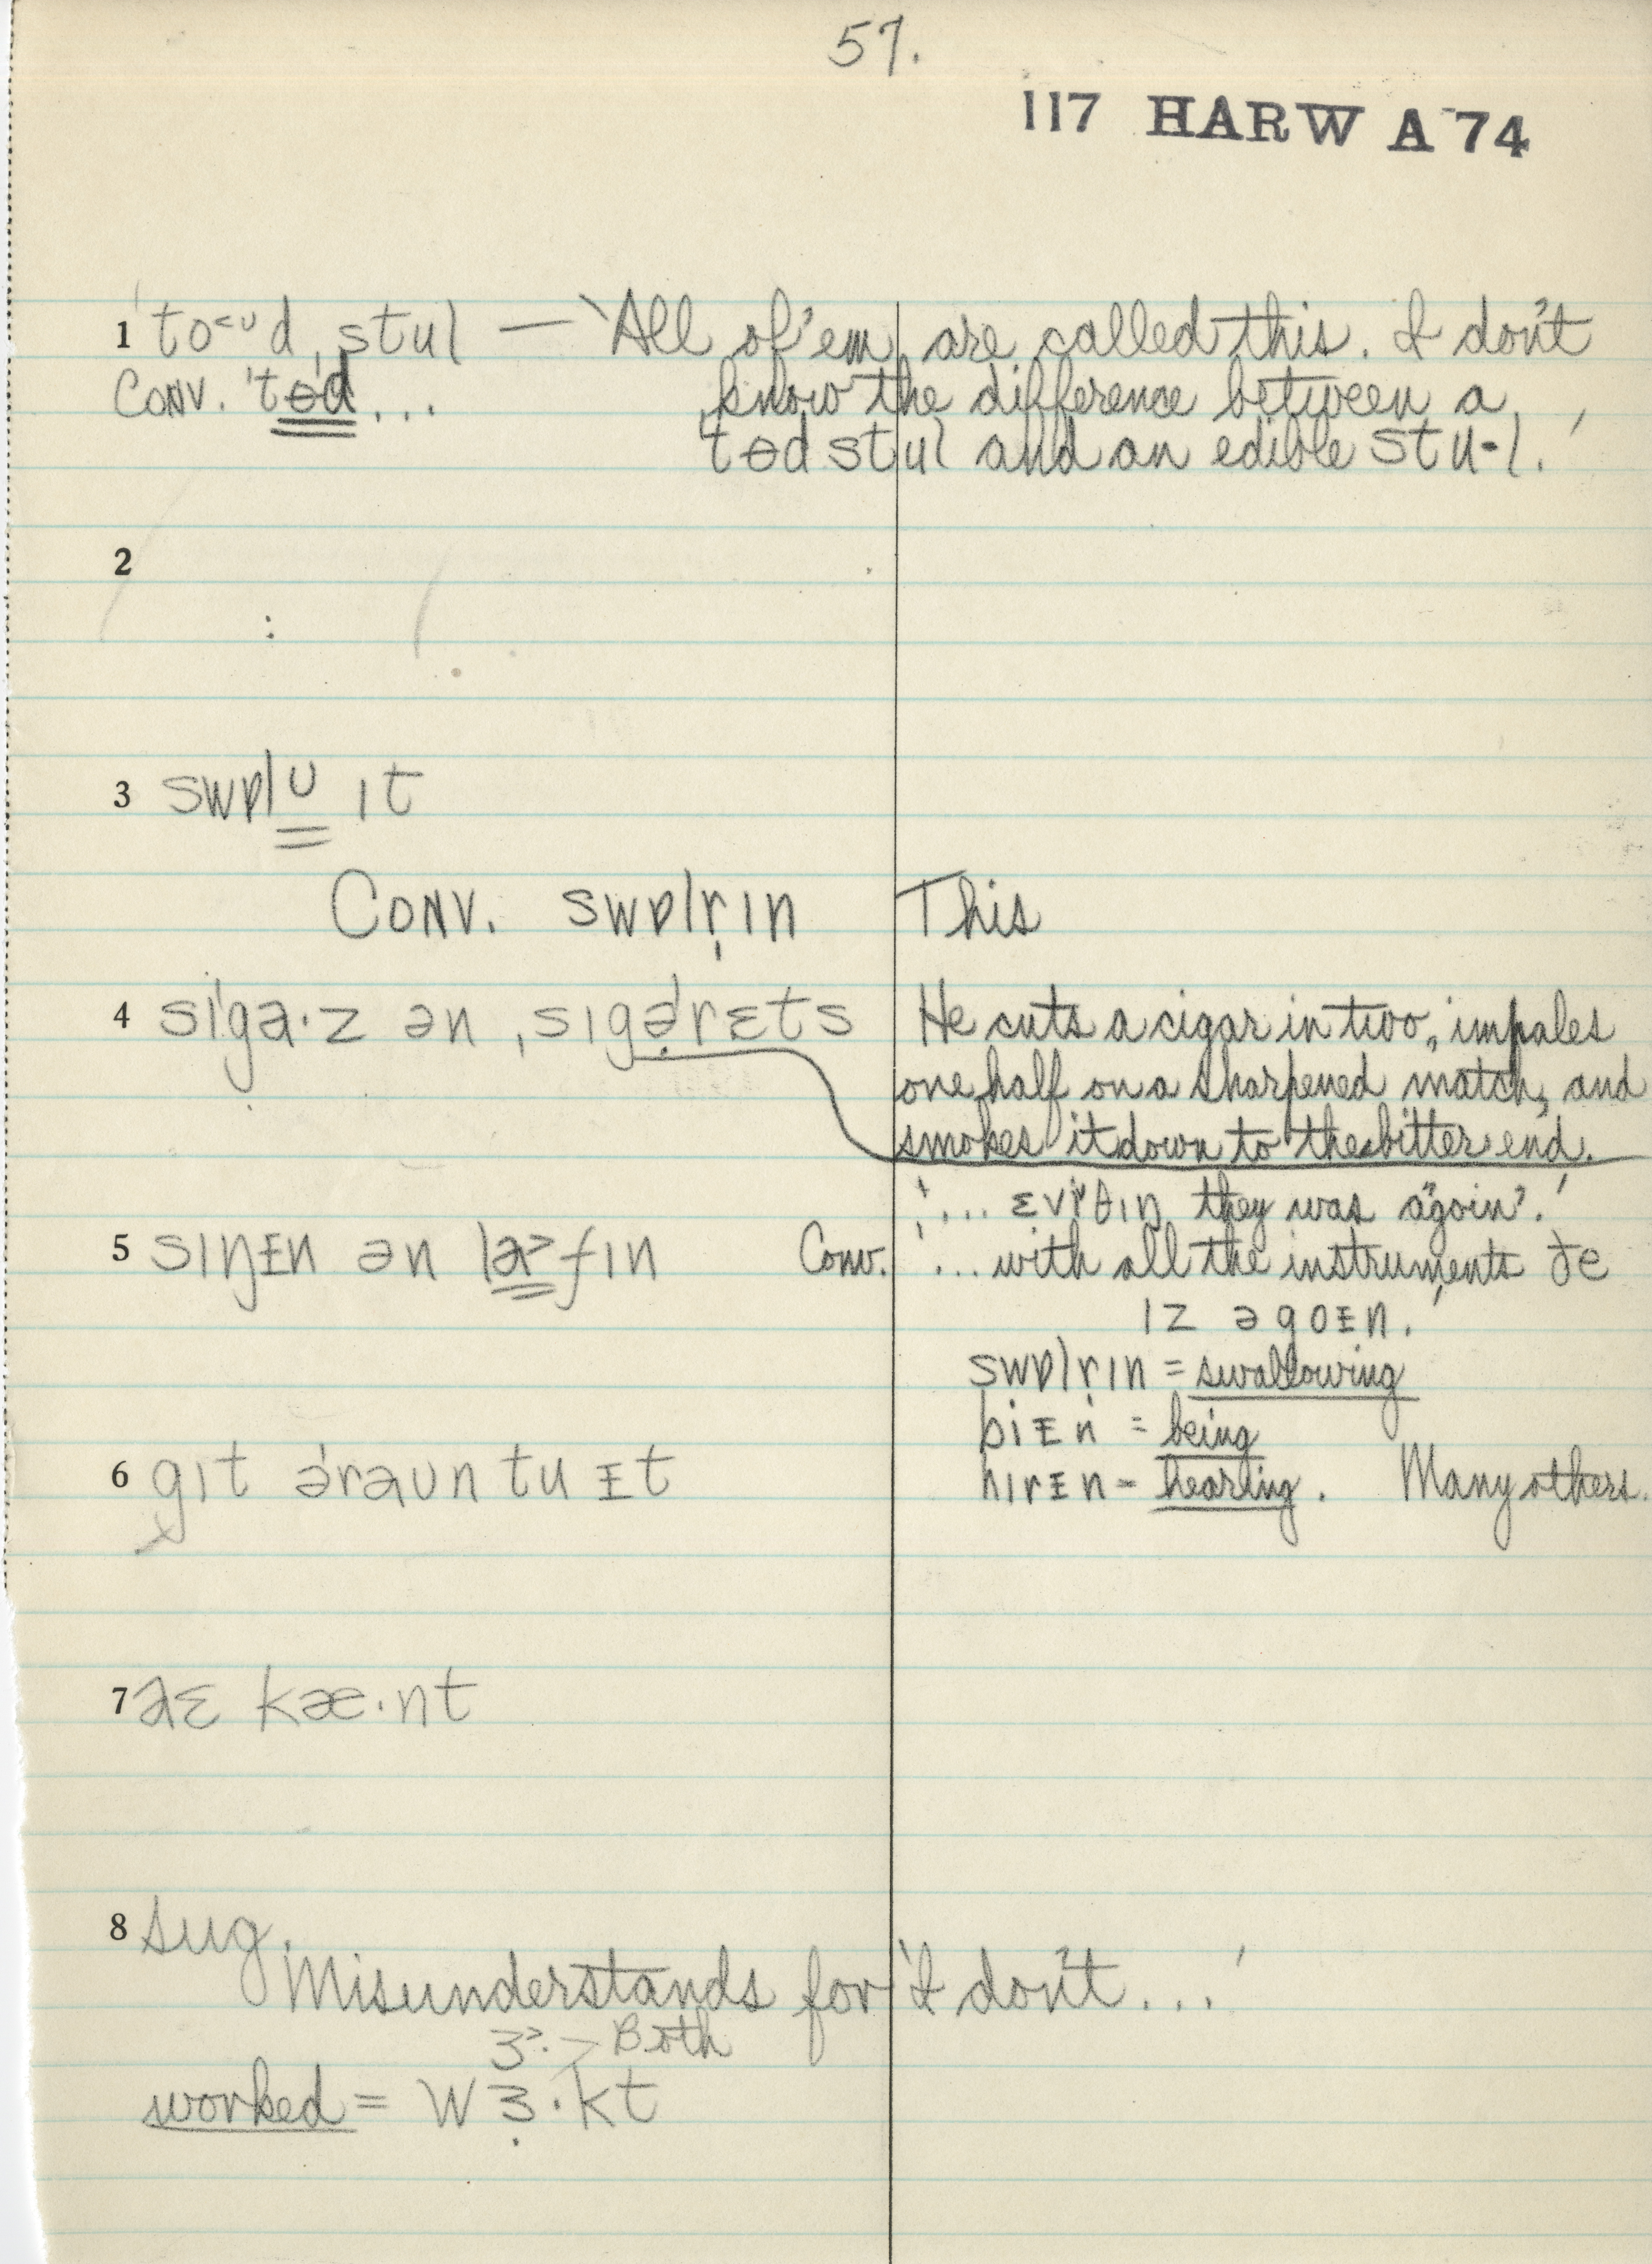 57.
117 HARW A 74
1 ˈto<ᴜd ˌstul — 'All of 'em are called this. I don't
Conv. ˈtɵd... know the difference between a
tɵd stul and an edible stu·l.'
2
3 swɒlᴜ ɪt
Conv. swɒlr̩ɪn This
4 siˈga·z ən ˌsɪgəˈrɛts He cuts a cigar in two, impales
one half on a sharpened match, and
smokes it down to the bitter end.
'... ɛvrθɪŋ they was a'goin'.'
5 sɪŋɪn ən la>fɪn Conv. '... with all the instruments ðe
ɪz əgoɪn.'
swɒlr̩ɪn = swallowing
biɪn = being
6 gɪt əˈraᴜn tu ɪt hɪrɪn = hearing. Many others.
7 aɛ kæ·nt
8 sug.
Misunderstands for 'I don't...'
ɜ>· > Both
worked = wɜ·kt